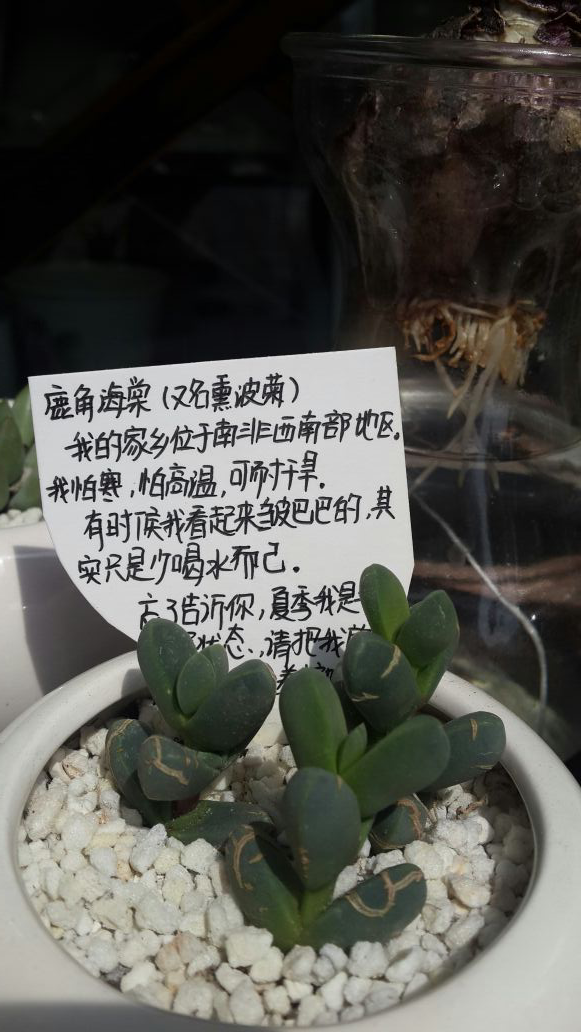 鹿角海棠(又名熏波菊)
我的家乡位于南非西南部地区.
我怕寒,怕高温,可耐干旱.
有时候我看起来皱巴巴的,其
实只是少喝水而已.
忘了告诉你,夏季我是
状态,请把我放